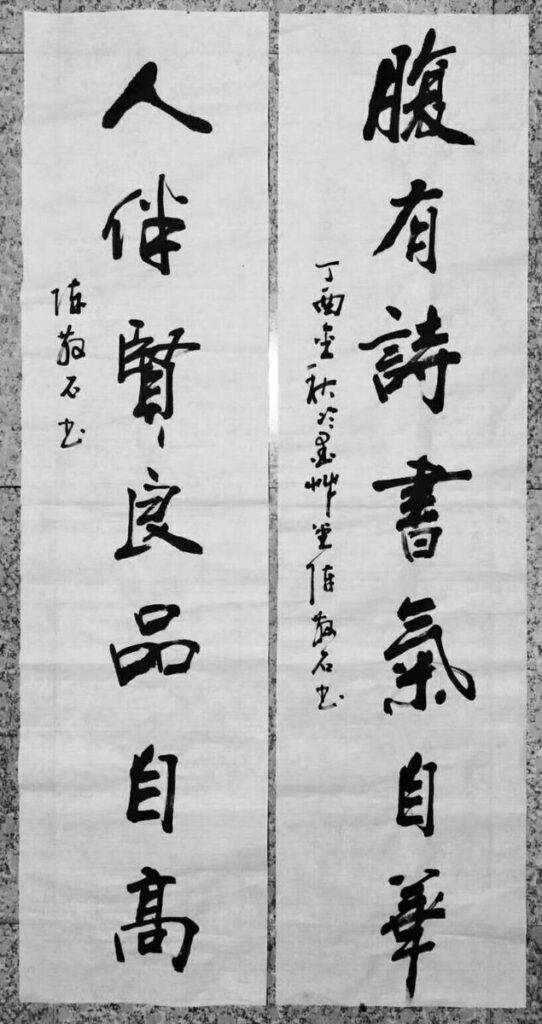 腹有詩書氣自華
丁酉金秋於墨艸堂陳敬石书
人伴賢良品自高
陳敬石书